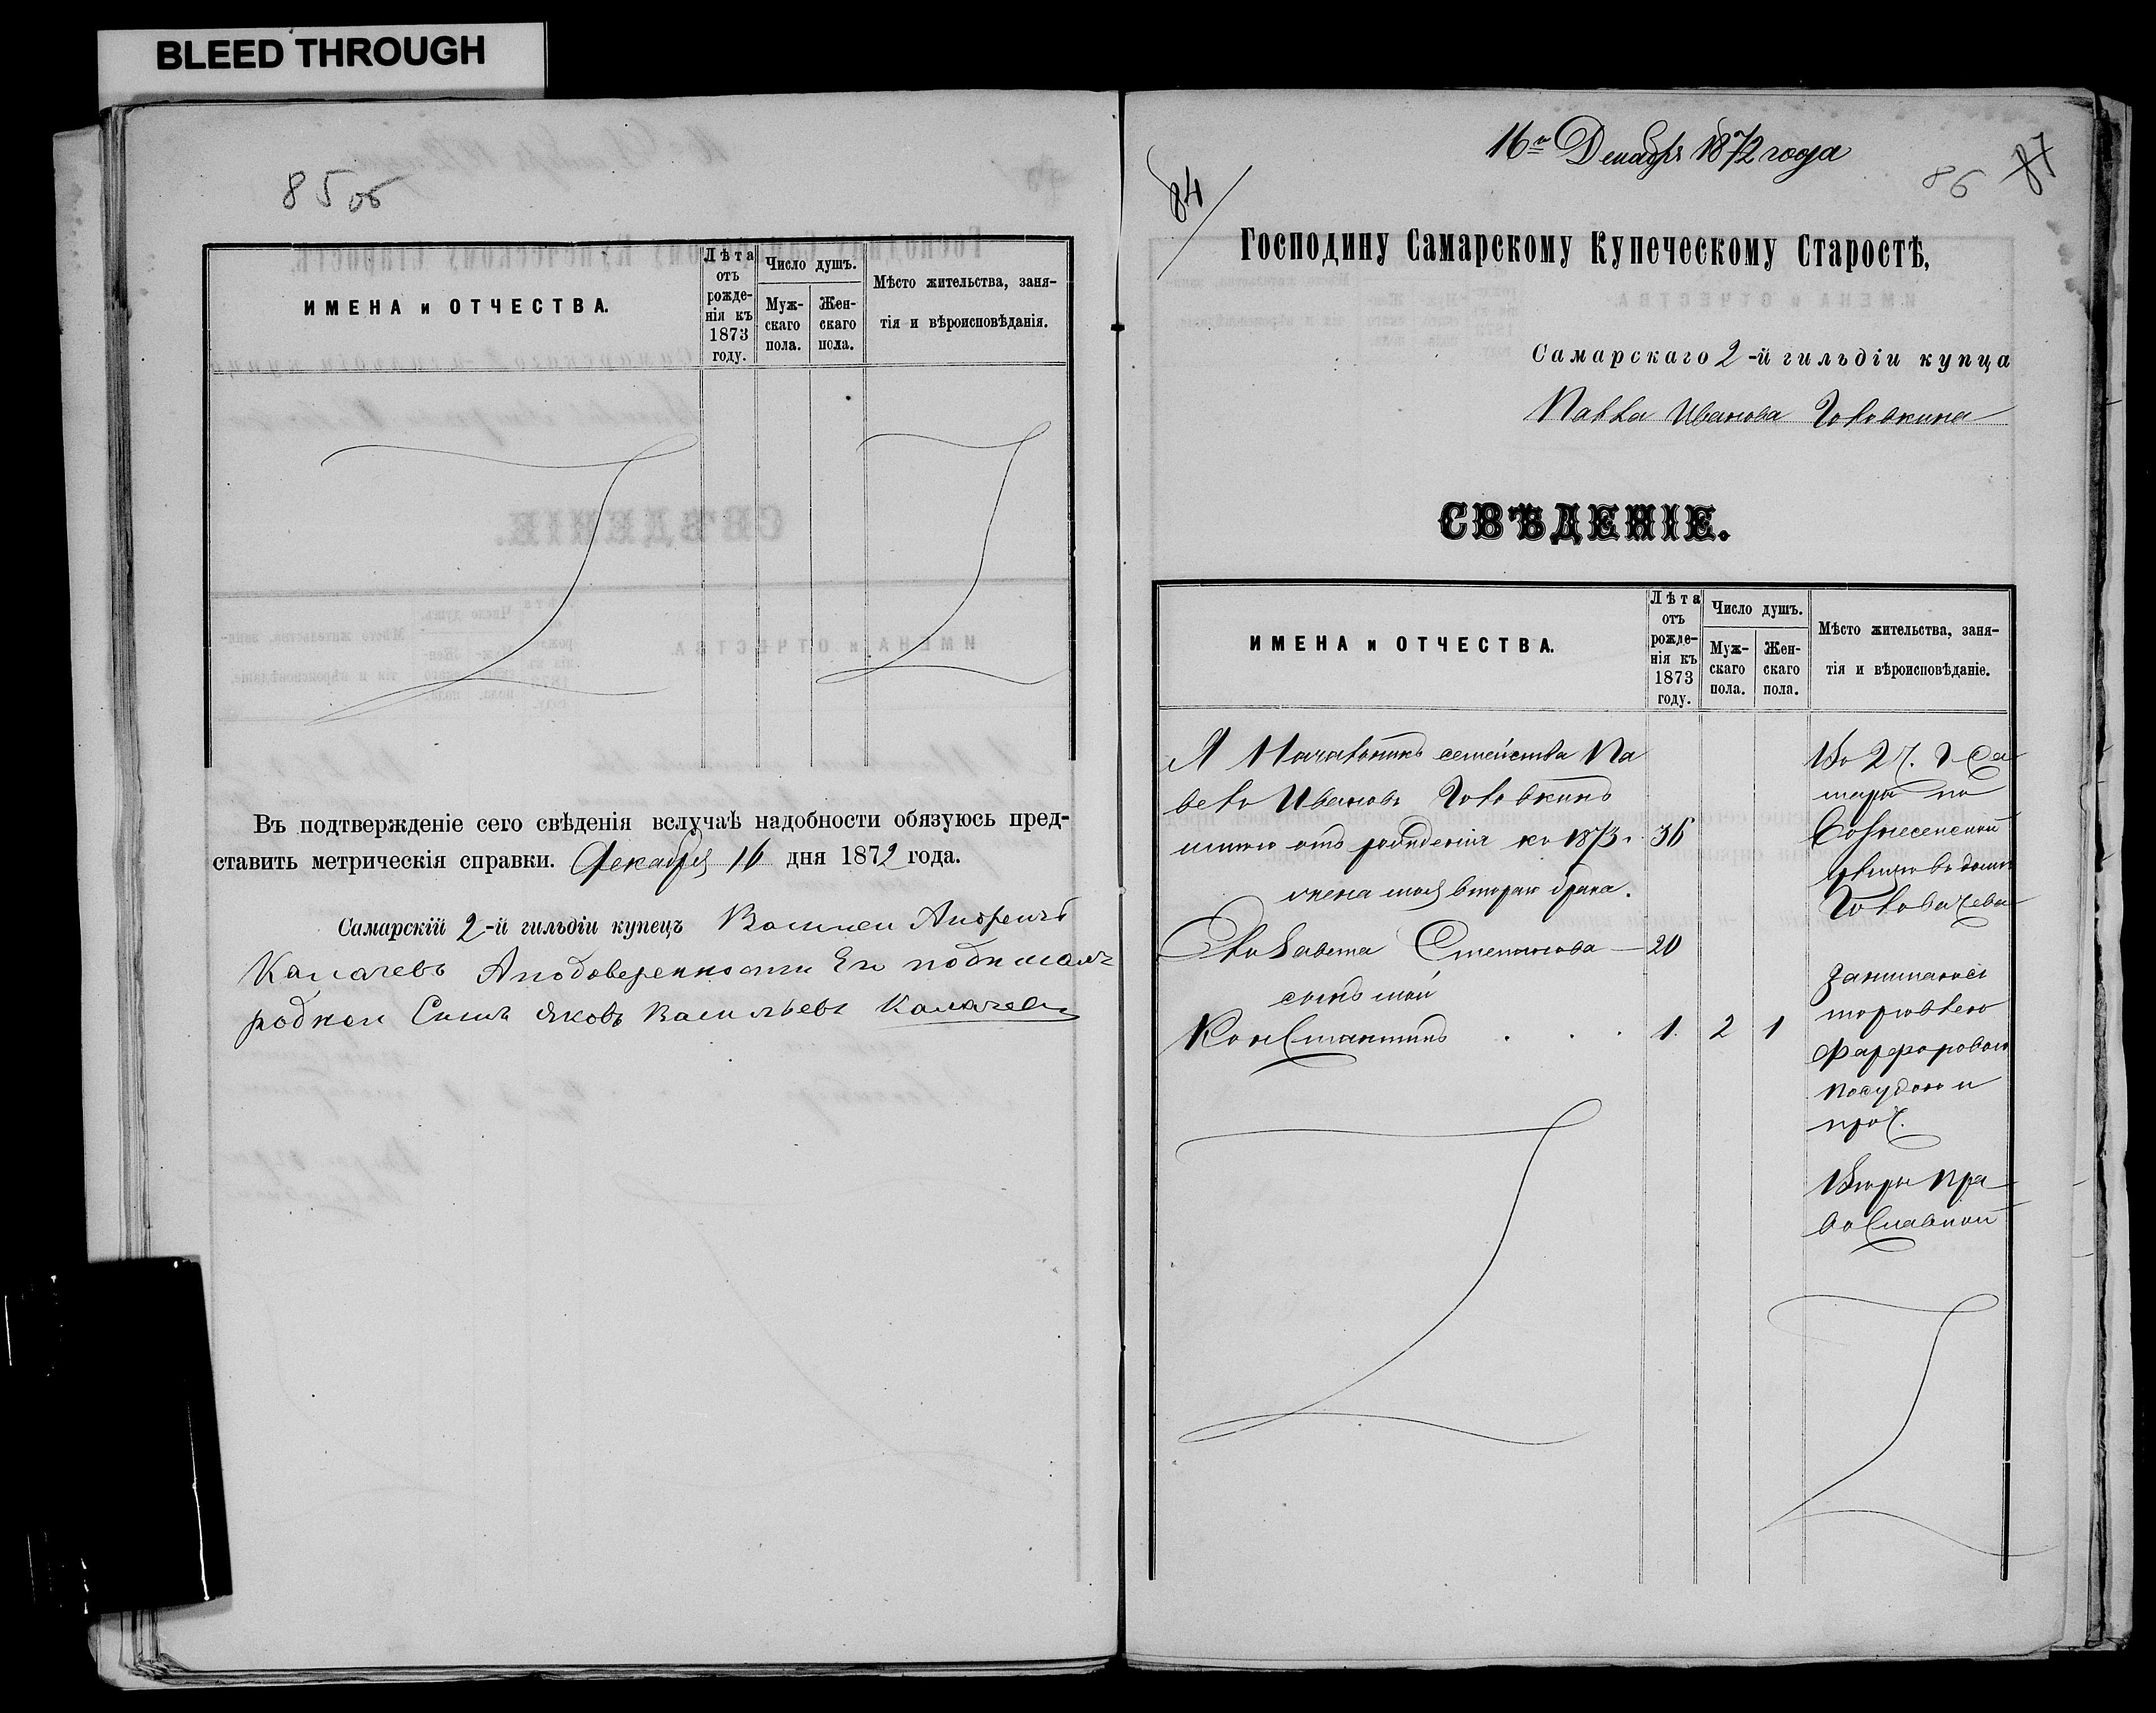 BLEED THROUGH
85об
ИМЕНА и ОТЧЕСТВА.
Лѣта отъ рожденія къ 1873 году.
Число душъ.
Мужскаго пола.
Женскаго пола.
Мѣсто жительства, заня-
тія и вѣроисповѣданія.
Въ подтвержденіе сего свѣденія вслучаѣ надобности обязуюсь пред-
ставить метрическія справки. Декабря 16 дня 1872 года.
Самарскій 2-й гильдіи купецъ Василеи Андреичь
Калачевъ Аподоверенности Его подписалъ
роднои Сынъ Яковъ Васильевъ Калачевъ
16го Декабря 1872 года
84
86 87
Господину Самарскому Купеческому Старостѣ,
Самарскаго 2-й гильдіи купца
Павла Иванова Головкина
СВѢДЕНІЕ.
ИМЕНА и ОТЧЕСТВА.
Лѣта
отъ
рожде-
нія къ
1873
году.
Число душъ.
Муж-
скаго
пола.
Жен-
скаго
пола.
Мѣсто жительства, заня-
тія и вѣроисповѣданіе.
Я Начальникъ семейства Па
велъ Ивановъ Головкинъ
отъ рожденія къ 1873 г. 36
жена моя втораго брака.
Елизавета Степанова — 20
сынъ мой
Константинъ . . . 1. 2 1
Во 2 ч. г Са
мары по
Вознесенской
улице въ доме
Головачева
Занимаюсь
торговлею
Фарфоровою
посудою и
проч.
Веры Пра
вославной